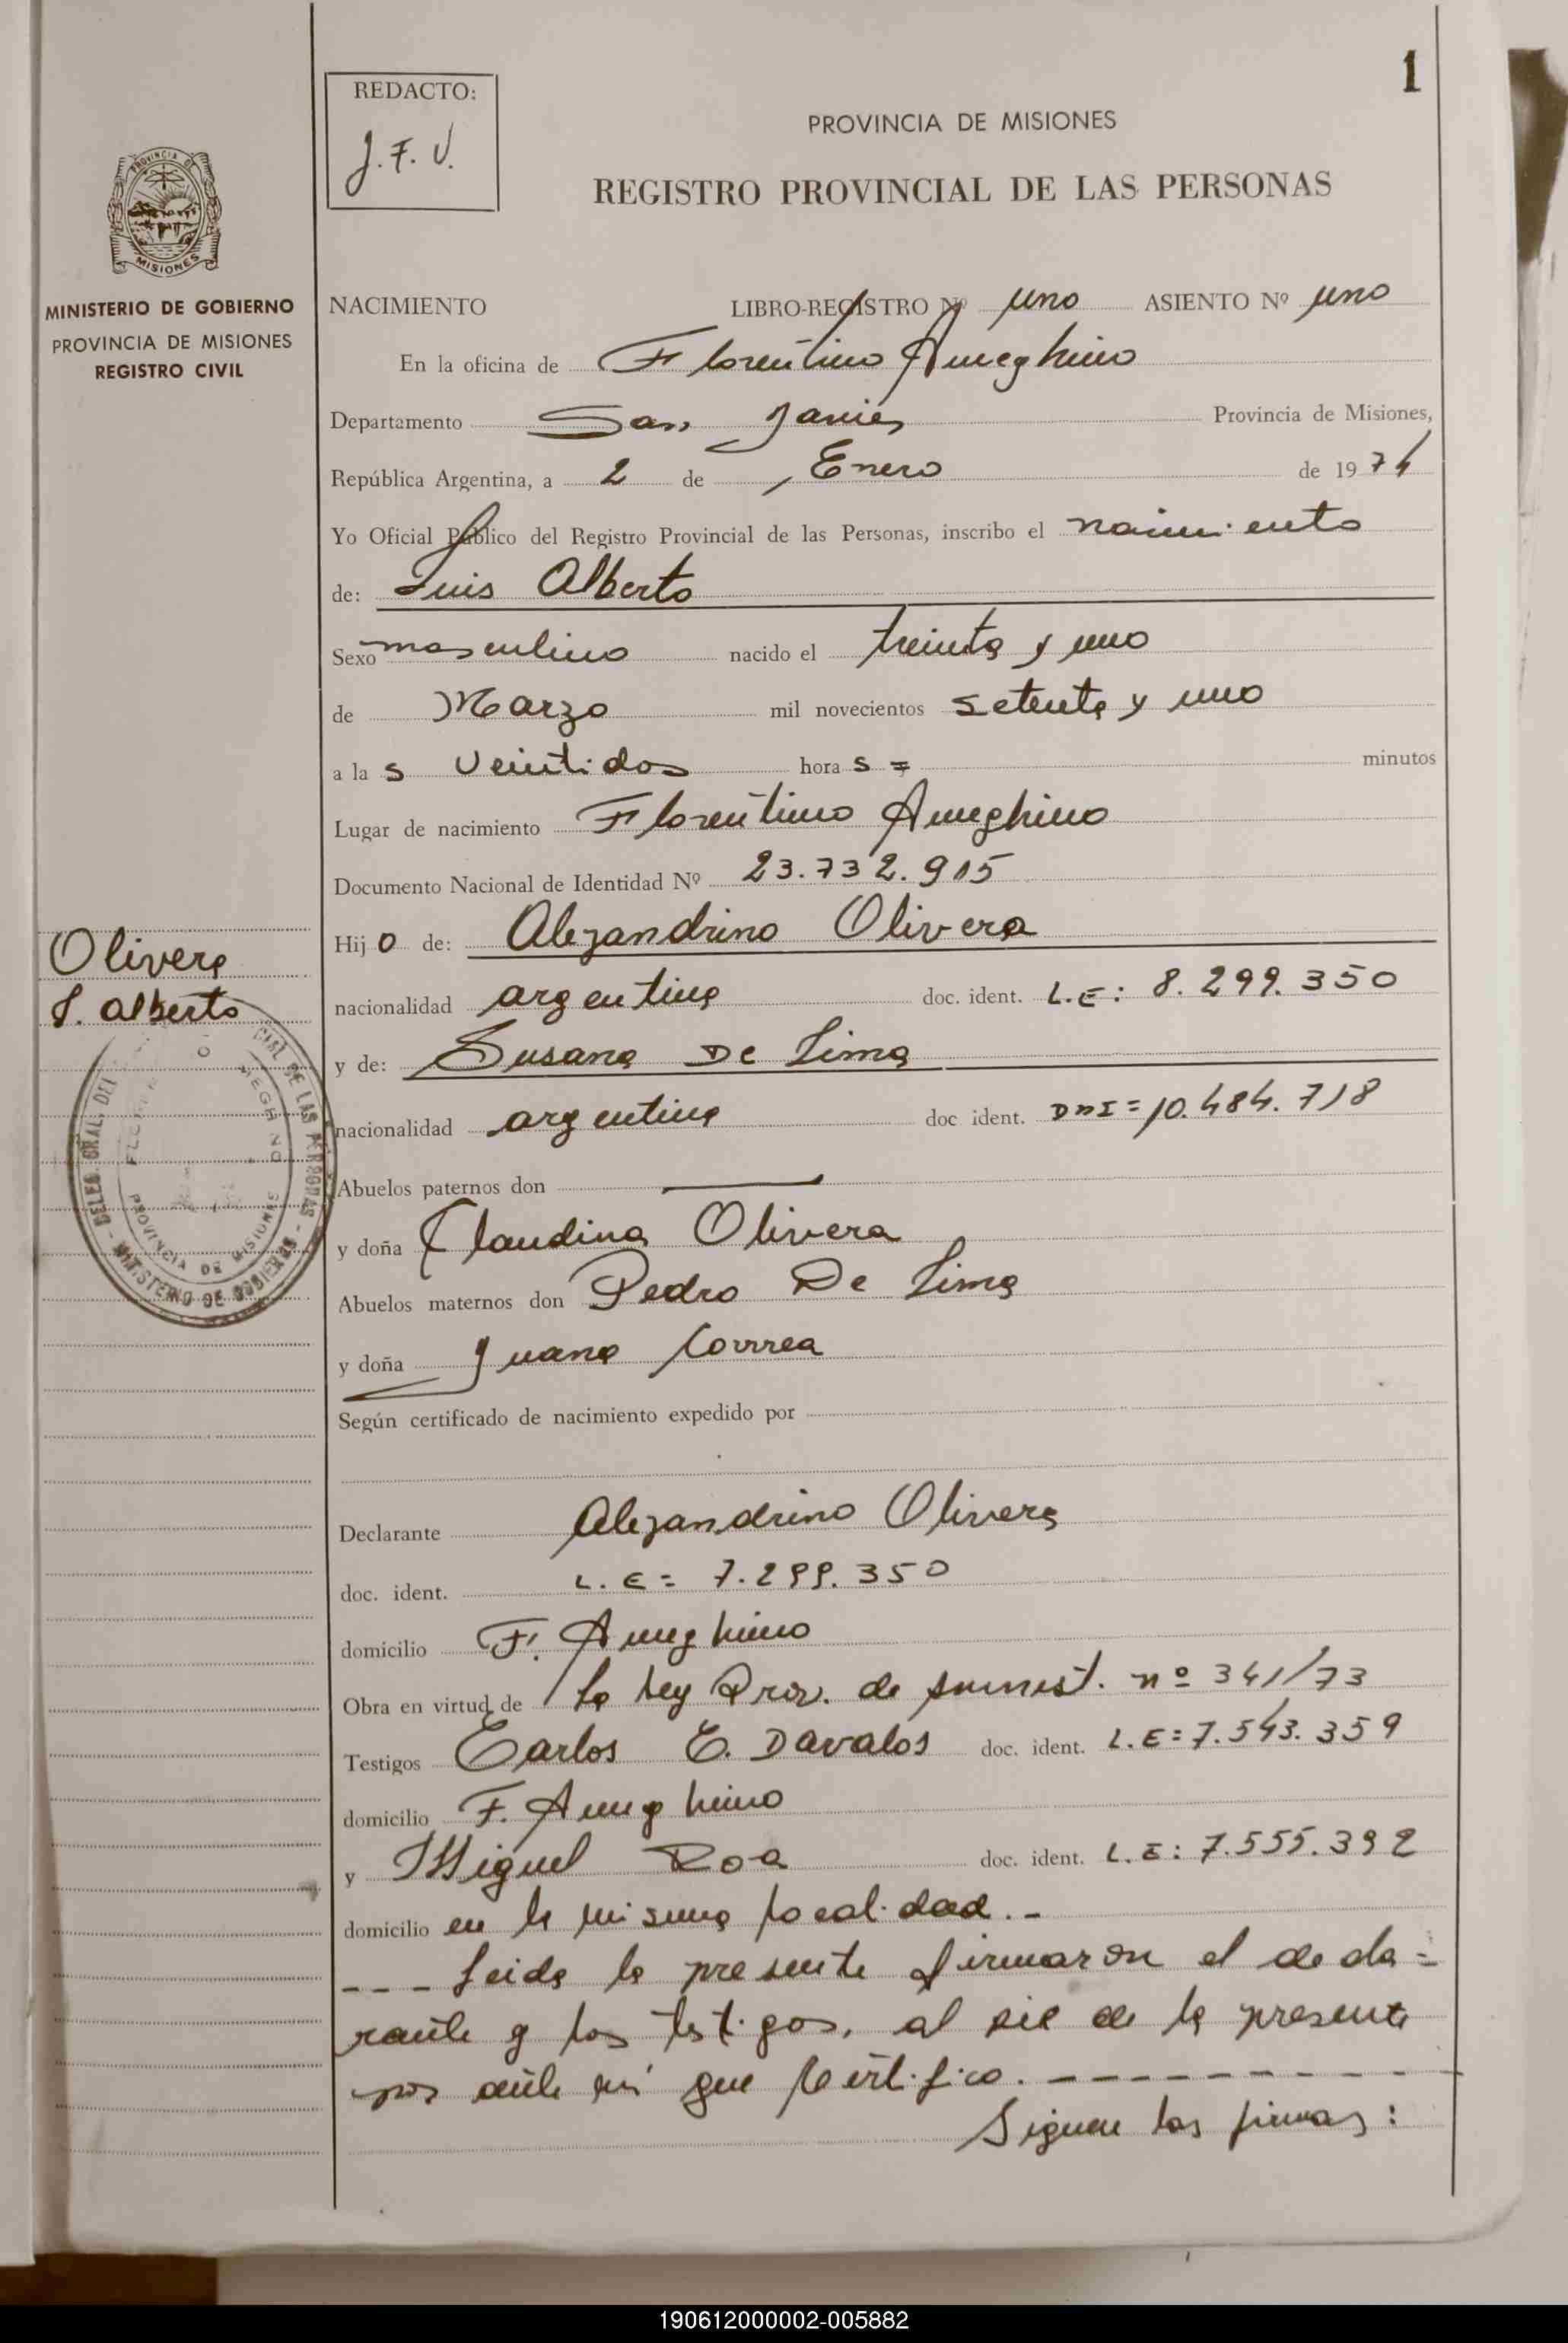 1
REDACTO:
J. F. V.
PROVINCIA DE MISIONES
REGISTRO PROVINCIAL DE LAS PERSONAS
PROVINCIA DE
MISIONES
MINISTERIO DE GOBIERNO
PROVINCIA DE MISIONES
REGISTRO CIVIL
NACIMIENTO LIBRO-REGISTRO Nº uno ASIENTO Nº uno
En la oficina de Florentino Ameghino
Departamento San Javier Provincia de Misiones,
República Argentina, a 2 de Enero de 1974
Yo Oficial Público del Registro Provincial de las Personas, inscribo el nacimiento
de: Luis Alberto
Sexo masculino nacido el treinta y uno
de Marzo mil novecientos setenta y uno
a la s veintidos hora s = minutos
Lugar de nacimiento Florentino Ameghino
Documento Nacional de Identidad Nº 23.732.915
Hij o de: Alejandrino Olivera
Olivera
L. Alberto
nacionalidad argentina doc. ident. L.E: 8.299.350
y de: Susana De Lima
nacionalidad argentina doc ident. DNI= 10.484.718
Abuelos paternos don ———
y doña Claudina Olivera
Abuelos maternos don Pedro De Lima
y doña Juana Correa
DELEG. GRAL. DEL CIAL DE LAS PERSONAS - MINISTERIO DE GOBIERNO -
PROVINCIA DE MISIONES
Según certificado de nacimiento expedido por
Declarante Alejandrino Olivera
doc. ident. L. E= 7.299.350
domicilio F. Ameghino
Obra en virtud de la Ley Prov. de amnist. nº 341/73
Testigos Carlos E. Davalos doc. ident. L.E=7.543.359
domicilio F. Ameghino
y Miguel Roa doc. ident. L.E: 7.555.392
domicilio en la misma localidad.-
--- Leida la presente firmaron el decla=
rante y los testigos, al pie de la presente
por ante mi que certifico. ----------
Siguen las firmas:
190612000002-005882